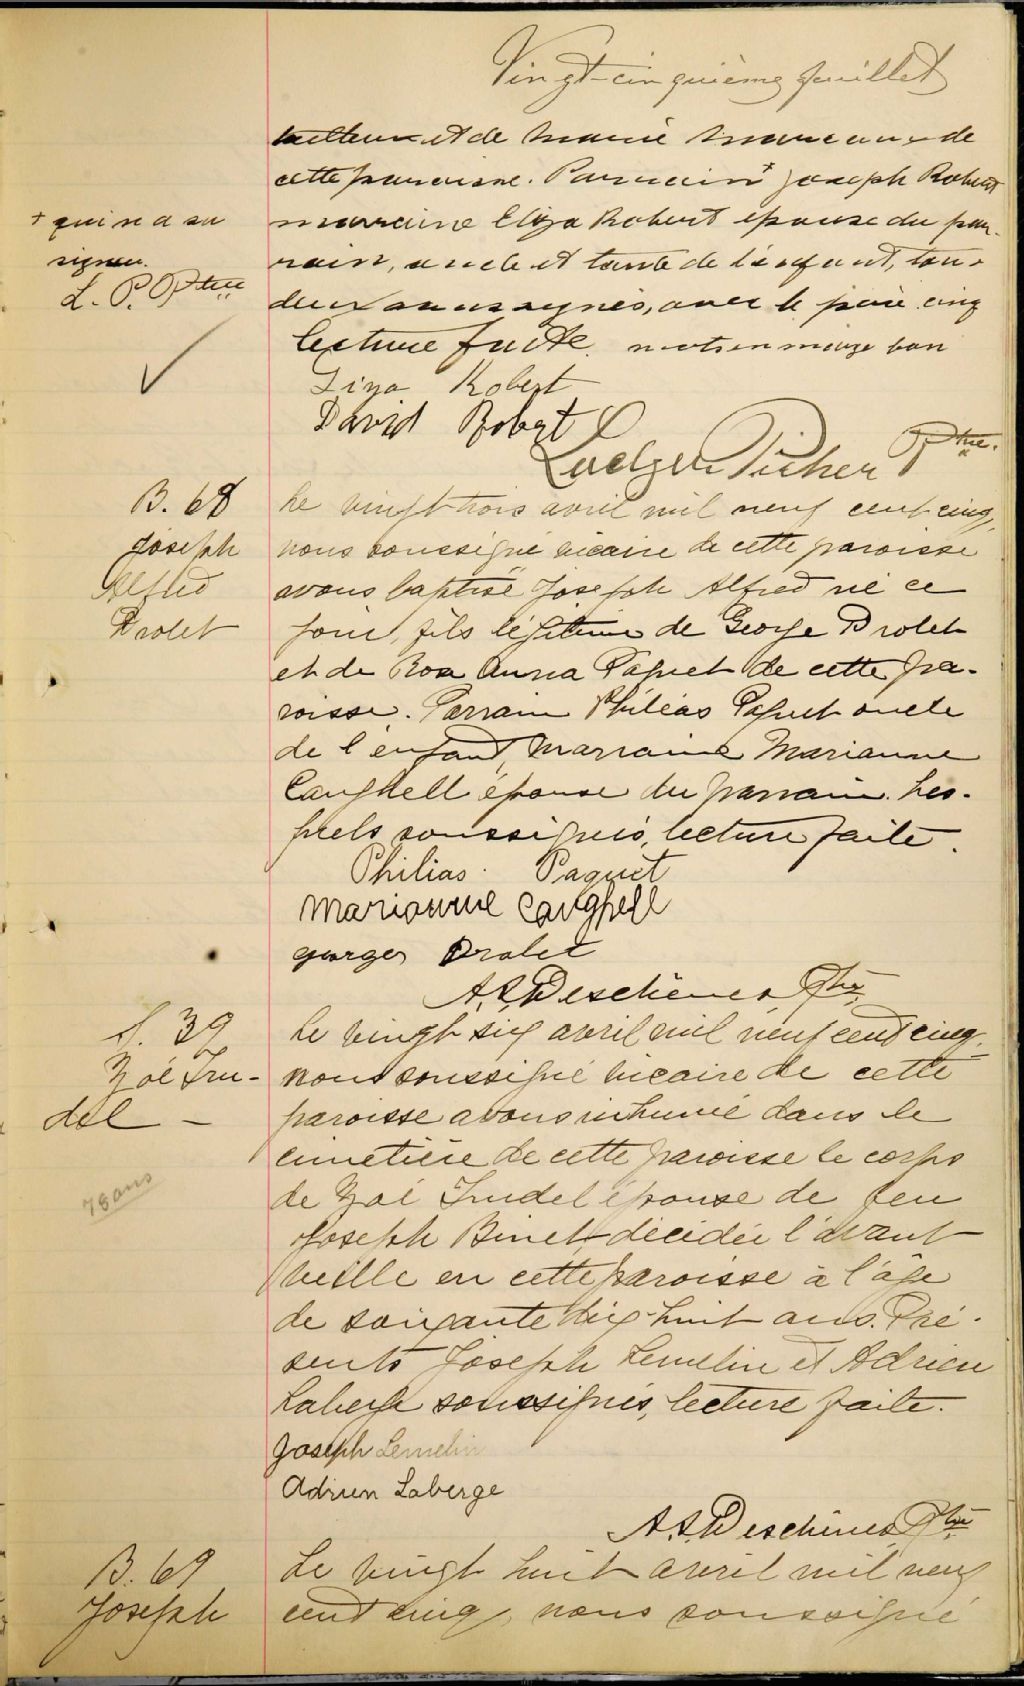 Vingt-cinquième feuillet
et de Marie de
cette paroisse. Parrain + Joseph Robert
+ qui n'a su
marraine Eliza Robert épouse du par-
signer.
rain, oncle et tante de l'enfant, tous
L. P. Ptre
deux soussignés, avec le père. cinq
lecture faite. mots en marge bon
Liza Robert
David Robert
Ludger Picher Ptre.
B. 68
Joseph
Alfred
Drolet
Le vingt trois avril mil neuf cent cinq,
nous soussigné vicaire de cette paroisse
avons baptisé Joseph Alfred né ce
jour, fils légitime de George Drolet
et de Rosa Anna Paquet de cette pa-
roisse. Parrain Philéas Paquet oncle
de l'enfant, marraine Marianne
Caughell épouse du parrain. Les-
quels soussignés, lecture faite.
Philias Paquet
Marianne Caughell
georges Drolet
A. S. Deschênes Ptre.
S. 39
Zoé Tru-
del —
78 ans
Le vingt six avril mil neuf cent cinq,
nous soussigné vicaire de cette
paroisse avons inhumé dans le
cimetière de cette paroisse le corps
de Zoé Trudel épouse de feu
Joseph Binet, décédée l'avant
veille en cette paroisse à l'âge
de soixante dix-huit ans. Pré-
sents Joseph Lemelin et Adrien
Laberge soussignés, lecture faite.
Joseph Lemelin
Adrien Laberge
A. S. Deschênes Ptre
B. 69
Joseph
Le vingt huit avril mil neuf
cent cinq, nous soussigné